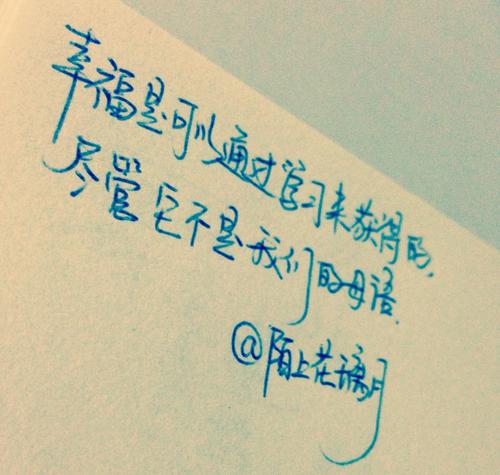 幸福是可以通过学习来获得的，
尽管它不是我们的母语.
@陌上花漓月